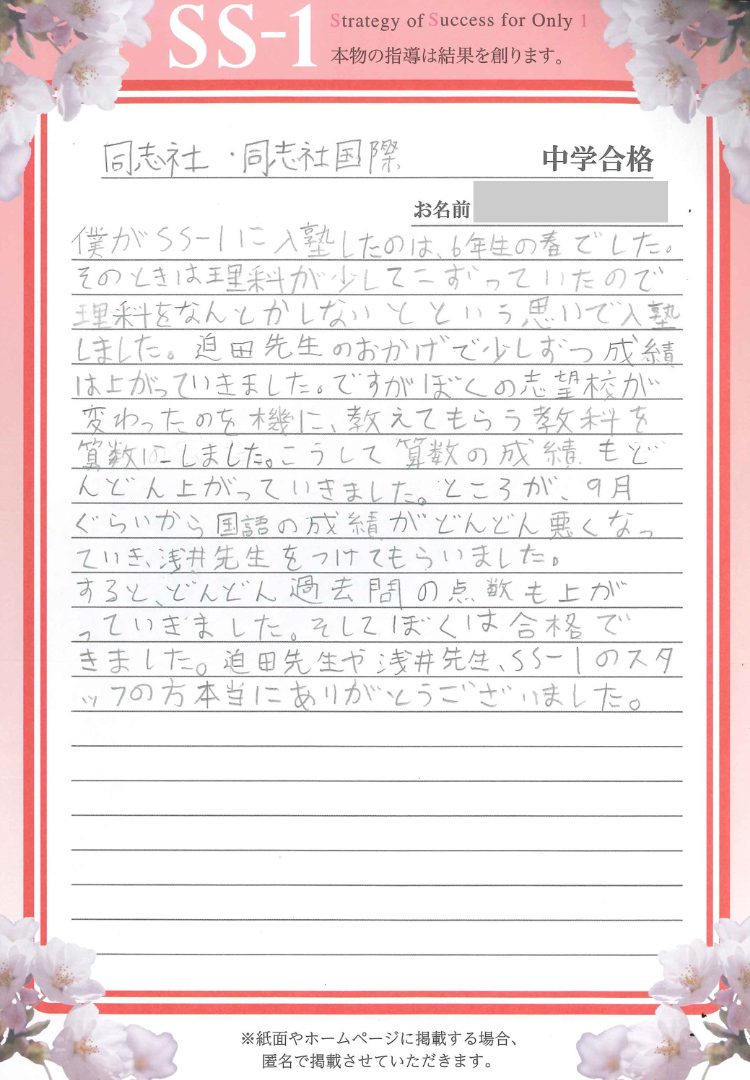 SS-1
Strategy of Success for Only 1
本物の指導は結果を創ります。
同志社・同志社国際 中学合格
お名前
僕がSS-1に入塾したのは、6年生の春でした。
そのときは理科が少してこずっていたので
理科をなんとかしないとという思いで入塾
しました。迫田先生のおかげで少しずつ成績
は上がっていきました。ですがぼくの志望校が
変わったのを機に、教えてもらう教科を
算数にしました。こうして算数の成績もど
んどん上がっていきました。ところが、9月
ぐらいから国語の成績がどんどん悪くなっ
ていき、浅井先生をつけてもらいました。
すると、どんどん過去問の点数も上が
っていきました。そしてぼくは合格で
きました。迫田先生や浅井先生、SS-1のスタ
ッフの方本当にありがとうございました。
※紙面やホームページに掲載する場合、
匿名で掲載させていただきます。